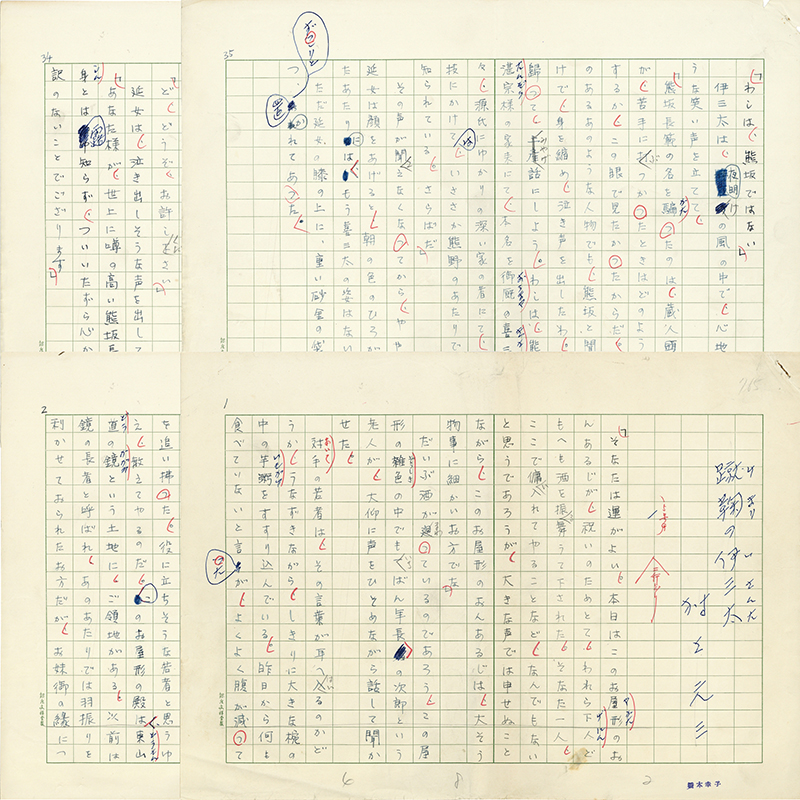 35
「わしは、熊坂ではない」
伊三太は、夜明けの風の中で、心地
うな笑い声を立てて、
「熊坂長範の名を騙ったのは、蔵人頭
が、苦手にぶつかったときはどのよう
するか、この眼で見たかったからだ、
のあるあのような人物でも、熊坂と聞
けで、身を縮め、泣き声を出したわ、
帰って、土産話にしよう。わしは、熊
湛宗様の家来にて、本名を御厩の喜三
々、源氏にゆかりの深い家の者にて、
技にかけては、いささか熊野のあたりで
知られている。さらばだ」
その声が聞えなくなってから、やや
延女は顔をあげると、朝の色のひろが
たあたりには、もう喜三太の姿はない
ただ延女の膝の上に、重い砂金の袋
つ、置かれてあった。
34
ど、どうぞ、お許しくださ
延女は、泣き出しそうな声を出して
「あなた様が、世上に噂の高い熊坂長
身とは露知らず、ついいたずら心か
訳のないことでござります」
1
蹴鞠の伊三太
村上元三
「そなたは運がよい、本日はこのお屋形のお
んあるじが、祝いのためとて、われら下人で
もへも酒を振舞うて下された、そなた一人、
ここで傭われてやることなど、なんでもない
と思うであろうが、大きな声では申せぬこと
ながら、このお屋形のおんあるじは、大そう
物事に細かいお方でな」
だいぶ酒が廻っているのであろう、この屋
形の雑色の中でもいちばん年長の次郎という
老人が、大仰に声をひそめながら話して聞か
せた、
対手の若者は、その言葉が耳へはいるのかど
うか、うなずきながら、しきりに大きな椀の
中の芋粥をすすり込んでいる、昨日から何も
食べていないと言ったが、よくよく腹が減って
2
を追い払った、役に立ちそうな若者と思うゆ
え、教えてやるのだ、このお屋形の殿は東山
道の鏡という土地に、ご領地がある、以前は
鏡の長者と呼ばれ、あのあたりでは羽振りを
利かせておられたお方だが、お妹御の縁につ